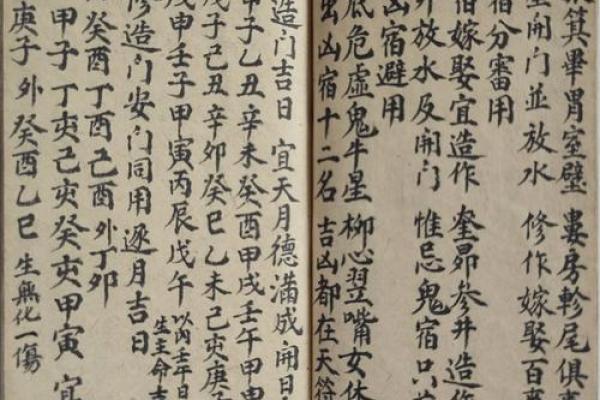 箕畢胃室璧 婁房軫尾俱
開門並放水 修作嫁娶百事
宿分審用
宿嫁娶宜造作 奎昴參井造作
放水及開門 惟忌鬼宿只
凶宿避用
底危虛鬼牛星 柳心翌嘴女休
凶宿十二名 吉凶都在天符
造门吉日 宜天月德滿成開日
甲子乙丑辛未癸酉甲戌壬午甲申
戊子己丑辛卯癸巳乙未己亥庚子
戊申壬子甲寅丙辰戊午 以內壬午日
生主命吉
修造门安门同用逐月吉日
癸酉丁酉己酉 外丁卯
甲子丁亥己亥癸亥甲寅 宜
庚子 外癸酉乙巳 生無化一傷